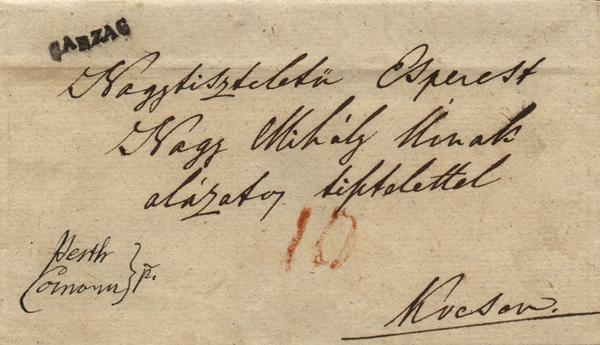 GARZAG
Nagytiszteletü Esperest
Nagy Mihály Úrnak
alázatos tisztelettel
10
Pesth
Comorn } p.
Kocson.